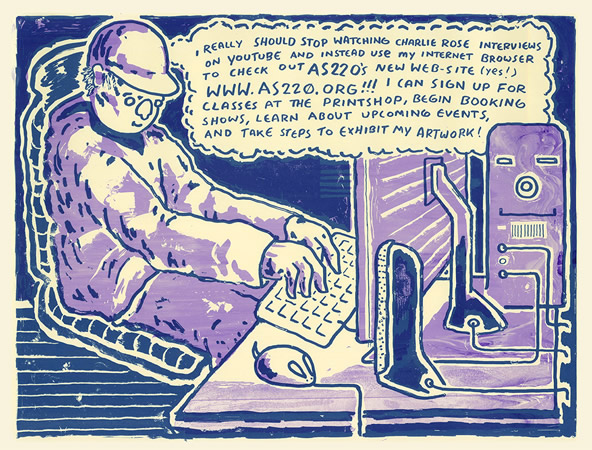 I REALLY SHOULD STOP WATCHING CHARLIE ROSE INTERVIEWS
ON YOUTUBE AND INSTEAD USE MY INTERNET BROWSER
TO CHECK OUT AS220'S NEW WEB-SITE (YES!)
WWW.AS220.ORG!!! I CAN SIGN UP FOR
CLASSES AT THE PRINTSHOP, BEGIN BOOKING
SHOWS, LEARN ABOUT UPCOMING EVENTS,
AND TAKE STEPS TO EXHIBIT MY ARTWORK!